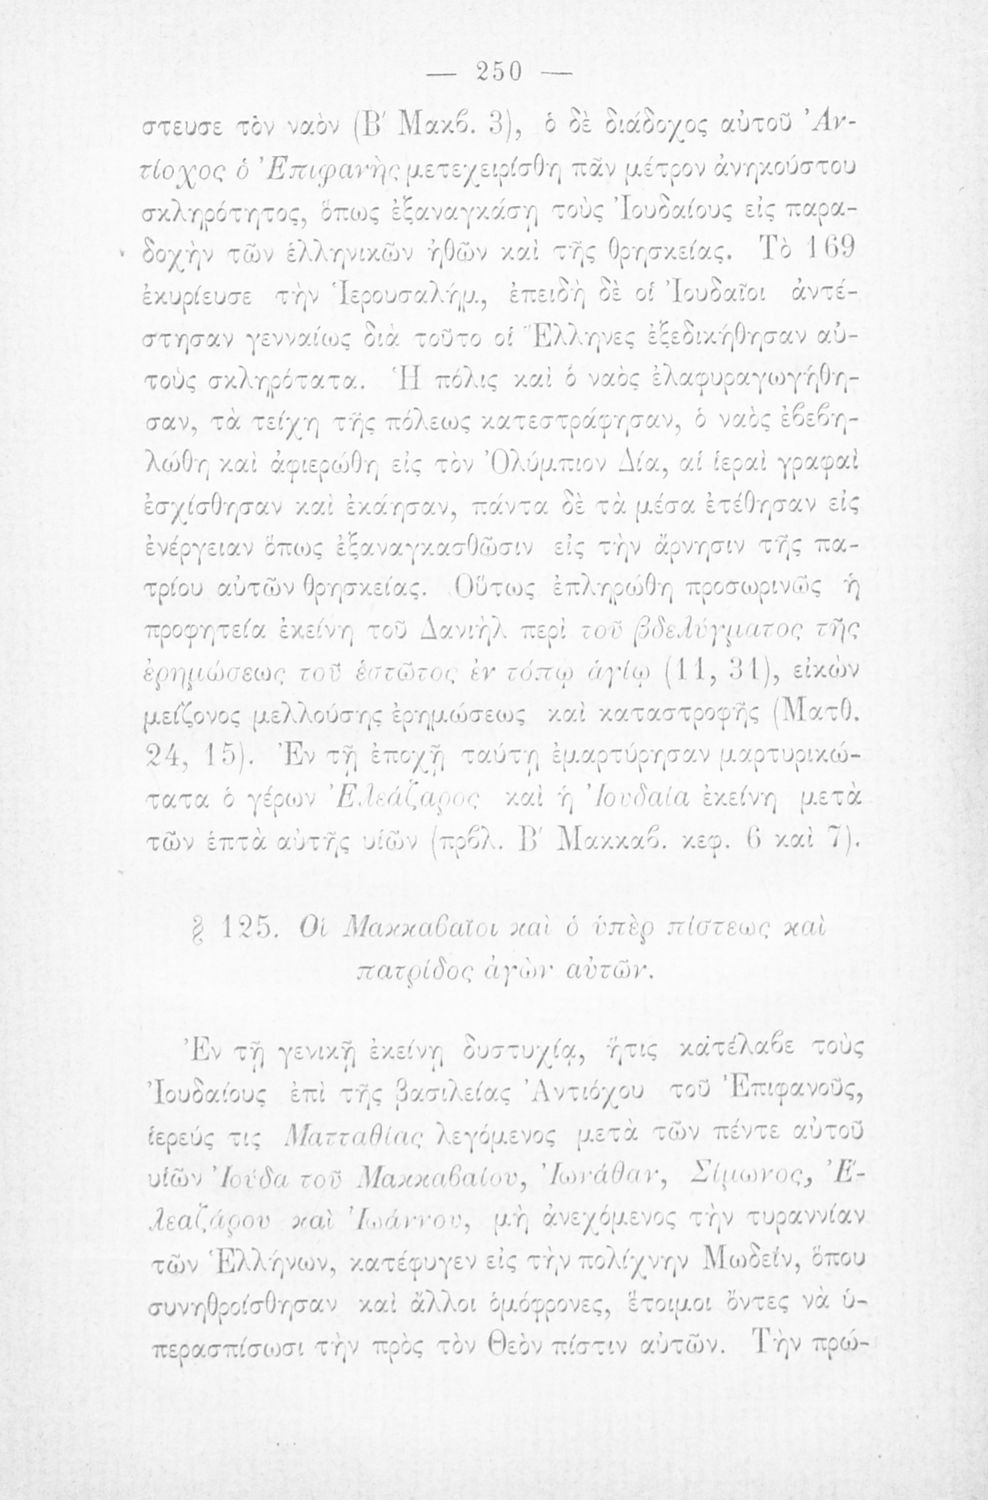 — 250 —
στευσε τὸν ναὸν (Β' Μακβ. 3), ὁ δὲ διάδοχος αὐτοῦ Ἀν-
τίοχος ὁ Ἐπιφανὴς μετεχειρίσθη πᾶν μέτρον ἀνηκούστου
σκληρότητος, ὅπως ἐξαναγκάσῃ τοὺς Ἰουδαίους εἰς παρα-
δοχὴν τῶν ἑλληνικῶν ἠθῶν καὶ τῆς θρησκείας. Τὸ 169
ἐκυρίευσε τὴν Ἱερουσαλήμ, ἐπειδὴ δὲ οἱ Ἰουδαῖοι ἀντέ-
στησαν γενναίως διὰ τοῦτο οἱ Ἕλληνες ἐξεδικήθησαν αὐ-
τοὺς σκληρότατα. Ἡ πόλις καὶ ὁ ναὸς ἐλαφυραγωγήθη-
σαν, τὰ τείχη τῆς πόλεως κατεστράφησαν, ὁ ναὸς ἐβεβη-
λώθη καὶ ἀφιερώθη εἰς τὸν Ὀλύμπιον Δία, αἱ ἱεραὶ γραφαὶ
ἐσχίσθησαν καὶ ἐκάησαν, πάντα δὲ τὰ μέσα ἐτέθησαν εἰς
ἐνέργειαν ὅπως ἐξαναγκασθῶσιν εἰς τὴν ἄρνησιν τῆς πα-
τρίου αὐτῶν θρησκείας. Οὕτως ἐπληρώθη προσωρινῶς ἡ
προφητεία ἐκείνη τοῦ Δανιὴλ περὶ τοῦ βδελύγματος τῆς
ἐρημώσεως τοῦ ἑστῶτος ἐν τόπῳ ἁγίῳ (11, 31), εἰκὼν
μείζονος μελλούσης ἐρημώσεως καὶ καταστροφῆς (Ματθ.
24, 15). Ἐν τῇ ἐποχῇ ταύτῃ ἐμαρτύρησαν μαρτυρικώ-
τατα ὁ γέρων Ἐλεάζαρος καὶ ἡ Ἰουδαία ἐκείνη μετὰ
τῶν ἑπτὰ αὐτῆς υἱῶν (πρβλ. Β' Μακκαβ. κεφ. 6 καὶ 7).
§ 125. Οἱ Μακκαβαῖοι καὶ ὁ ὑπὲρ πίστεως καὶ
πατρίδος ἀγὼν αὐτῶν.
Ἐν τῇ γενικῇ ἐκείνῃ δυστυχίᾳ, ἥτις κατέλαβε τοὺς
Ἰουδαίους ἐπὶ τῆς βασιλείας Ἀντιόχου τοῦ Ἐπιφανοῦς,
ἱερεύς τις Ματταθίας λεγόμενος μετὰ τῶν πέντε αὐτοῦ
υἱῶν Ἰούδα τοῦ Μακκαβαίου, Ἰωνάθαν, Σίμωνος, Ἐ-
λεαζάρου καὶ Ἰωάννου, μὴ ἀνεχόμενος τὴν τυραννίαν
τῶν Ἑλλήνων, κατέφυγεν εἰς τὴν πολίχνην Μωδεΐν, ὅπου
συνηθροίσθησαν καὶ ἄλλοι ὁμόφρονες, ἕτοιμοι ὄντες νὰ ὑ-
περασπίσωσι τὴν πρὸς τὸν Θεὸν πίστιν αὐτῶν. Τὴν πρώ-